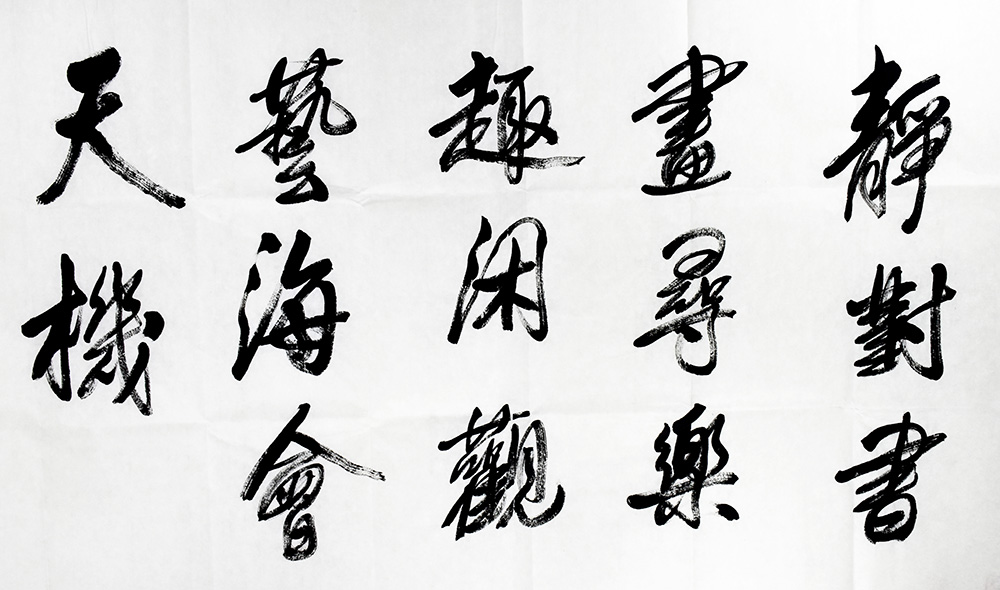 靜對書
畫尋樂
趣閑觀
藝海會
天機